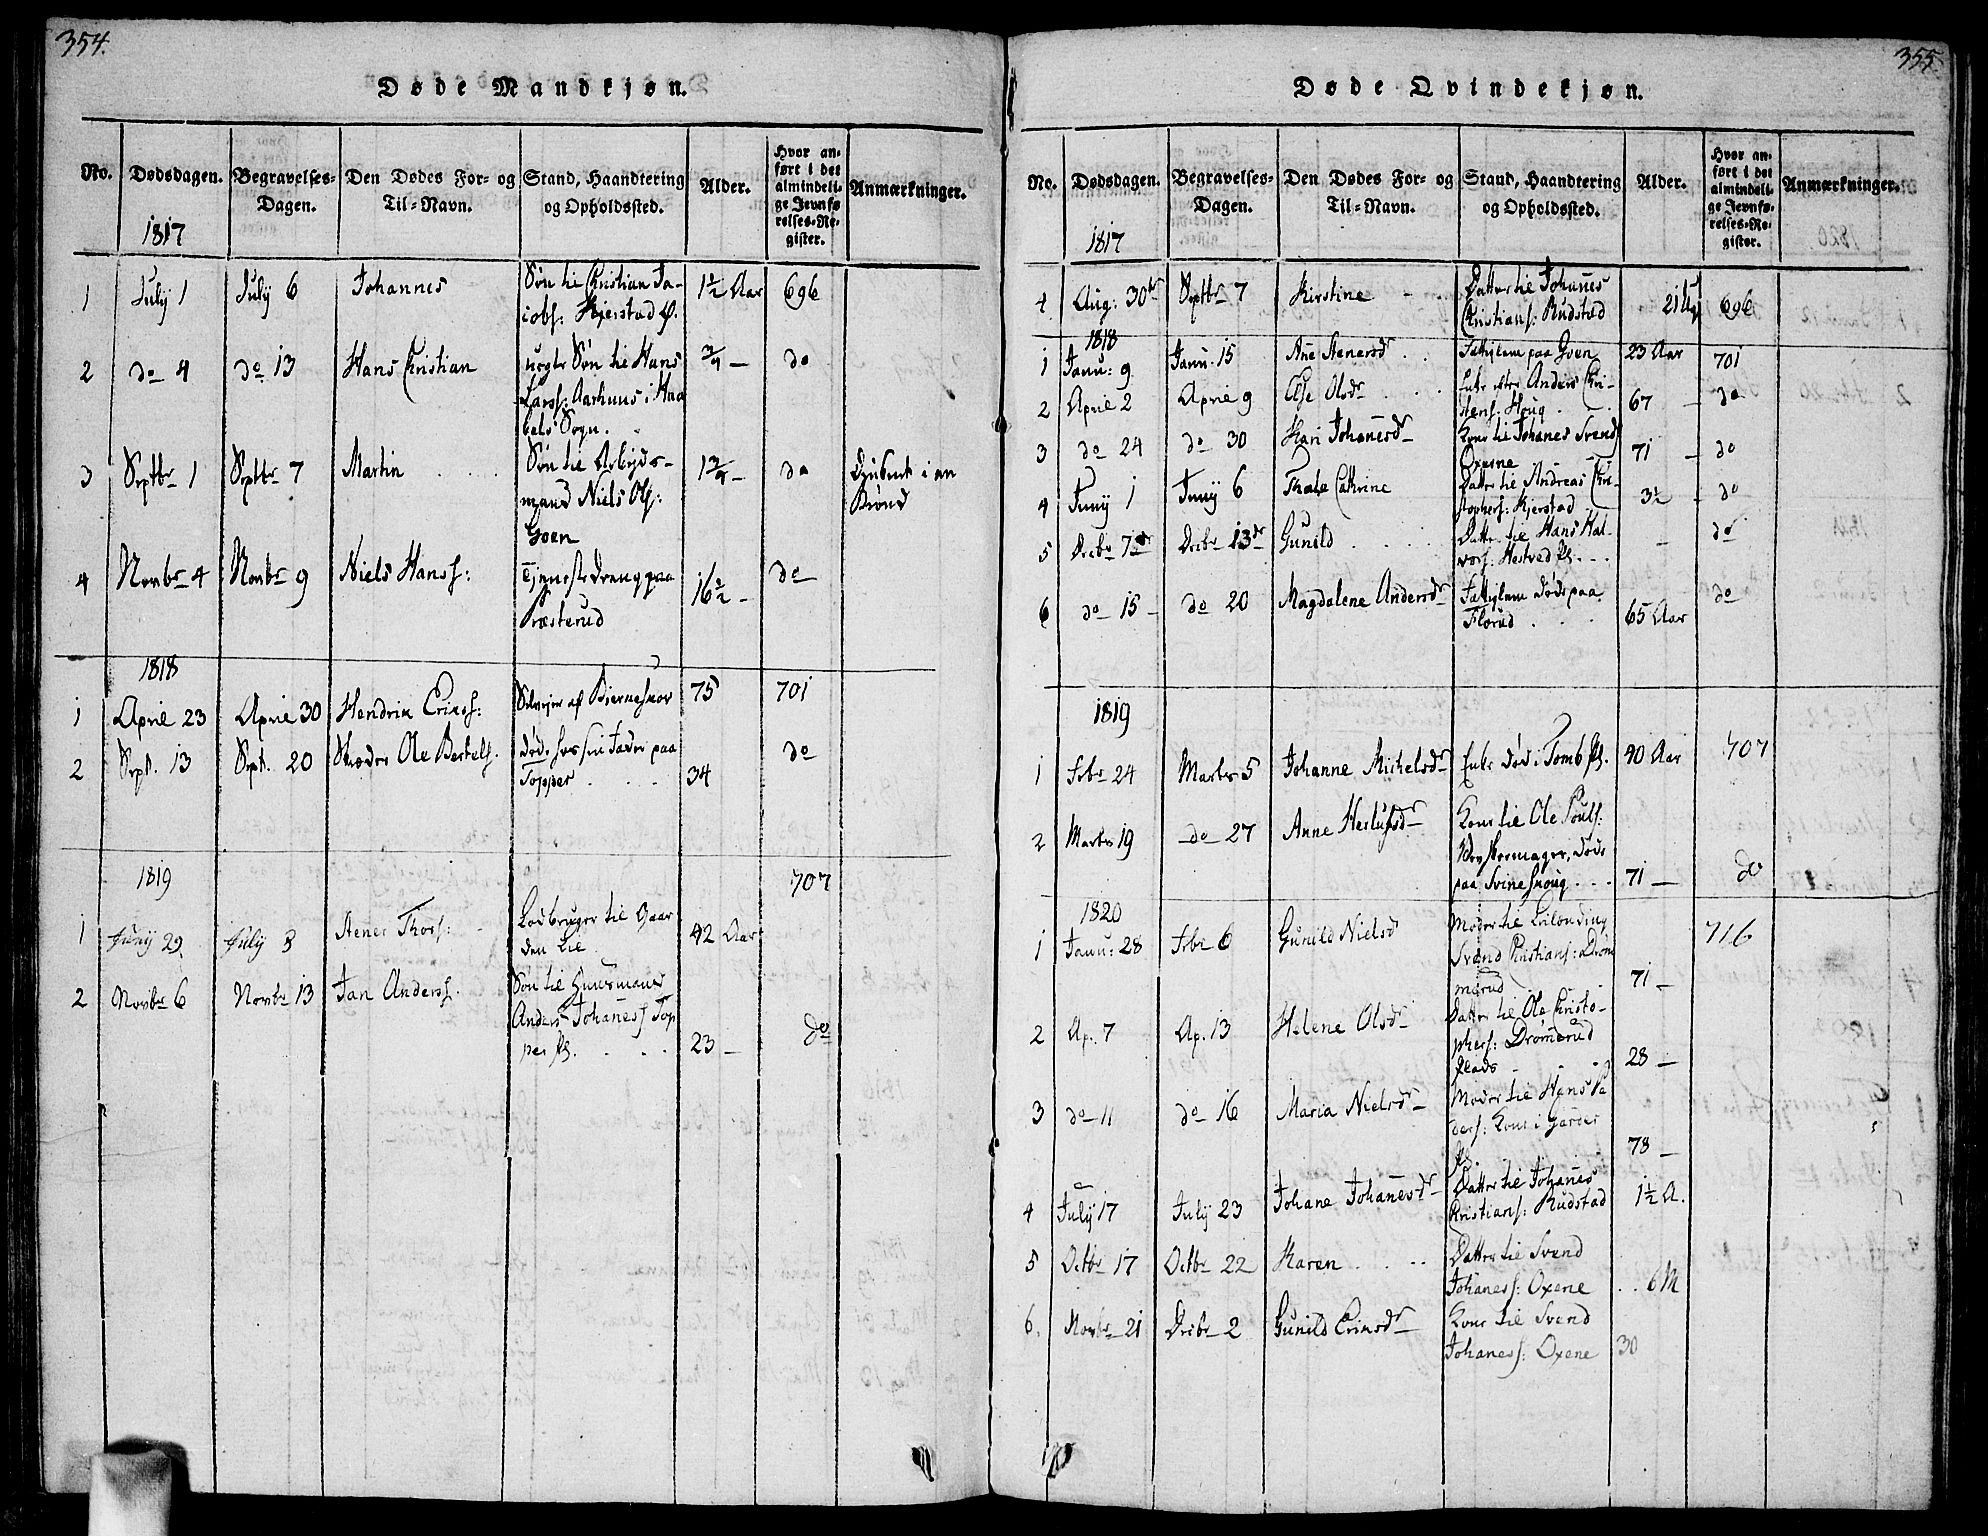 354.
Døde Mandkjøn.
No. Dødsdagen. Begravelses-Dagen. Den Dødes For- og Til-Navn. Stand, Haandtering og Opholdssted. Alder. Hvor anført i det almindelige Jevnførelses-Register. Anmærkninger.
1817
1 July 1 July 6 Johannes Søn til Christian Ja-
cobs: Kjerstad 1½ Aar 696
2 do 4 do 13 Hans Christian uegte Søn til Hans ¾ — do
Larss: Aarhuus i Haa
bøls Sogn.
3 Septbr 1 Septbr 7 Martin Søn til Arbeyds-
mand Niels Ols:
Goen 1¾ — do Druknet i en
Brønd
4 Novbr 4 Novbr 9 Niels Hanss: Tjenestedreng paa
Præsterud 16½ — do
1818
1 April 23 April 30 Hendrik Erikss: af Bierneskov 75 701
2 Sept. 13 Sept. 20 Skræder Ole Bertels. død hos sin Fader paa
Topper 34 do
1819
707
1 Juny 29 July 3 Stener Thors: Lodbruger til Gaar
den Lie 42 Aar
2 Novbr 6 Novbr 13 Jan Anderss. Søn til Huusmand
Anders Johaness Top
per Pl. 23 — do
355.
Døde Qvindekjøn.
No. Dødsdagen. Begravelses-Dagen. Den Dødes For- og Til-Navn. Stand, Haandtering og Opholdssted. Alder. Hvor anført i det almindelige Jevnførelses-Register. Anmærkninger.
1817
4 Aug: 30te Septbr 7 Kirstine Datter til Johanes
Christians: Rudstad 21 Ug 696
1818
1 Janu: 9 Janu. 15 Ane Stenersdr Fattiglem paa Goen 23 Aar 701
2 April 2 April 9 Else Olsdr Enke efter Anders Chri-
stens: Houg 67 — do
3 do 24 do 30 Kari Johanesdr Kone til Johanes Svends
Oxene 71 — do
4 Juny 1 Juny 6 Thale Cathrine Datter til Andreas Chri-
stophers: Kjerstad 3½ — do
5 Decbr 7de Decbr 13de Gunild Datter til Hans Hal-
vors: Hestved Pl. — do
6 do 15 — do 20 Magdalene Andersdr Fattiglem død paa
Florud 65 Aar do
1819
1 Febr 24 Marts 5 Johanne Mickelsdr Enke død i Tomb Pl. 40 Aar 707
2 Marts 19 do 27 Anne Herlufsdr Kone til Ole Pouls:
død
paa Svineskoug 71 — do
1820
1 Janu: 28 Febr 6 Gunild Nielsd Moder til
Svend Christians: Dröm
merud 71 — 716
2 Ap. 7 Ap. 13 Helene Olsdr Datter til Ole Christo-
phers: Drömerud
Plads 28 —
3 do 11 do 16 Maria Nielsdr Moder til Hans Pe
ders: Kone i Garder
Pl. 78 —
4 July 17 July 23 Johane Johanesdr Datter til Johanes
Christians: Rudstad 1½ A.
5 Octbr 17 Octbr 22 Karen Datter til Svend
Johaness: Oxene 6 M
6. Novbr 21 Decbr 2 Gunild Eriksdr Kone til Svend
Johaness: Oxene 30